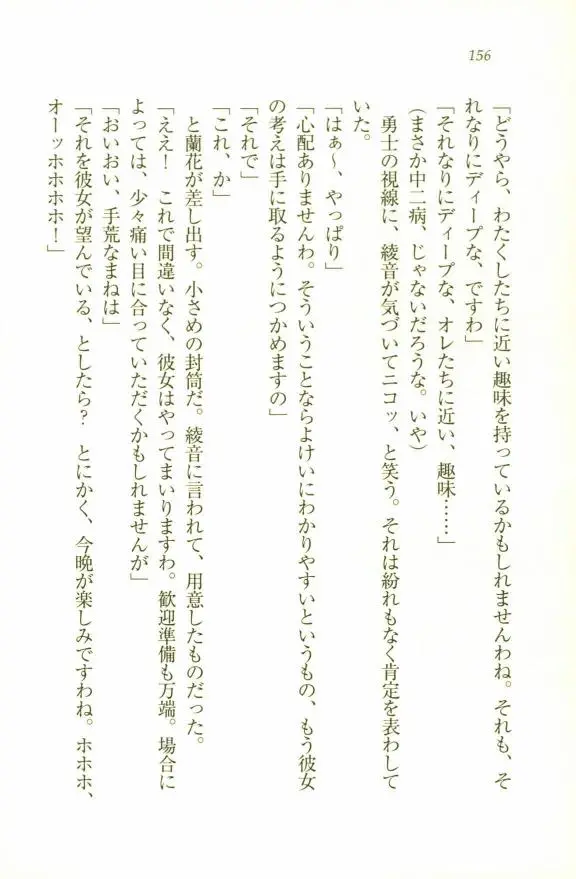 156
「どうやら、わたくしたちに近い趣味を持っているかもしれませんわね。それも、そ
れなりにディープな、ですわ」
「それなりにディープな、オレたちに近い、趣味……」
（まさか中二病、じゃないだろうな。いや）
勇士の視線に、綾音が気づいてニコッ、と笑う。それは紛れもなく肯定を表わして
いた。
「はぁ～、やっぱり」
「心配ありませんわ。そういうことならよけいにわかりやすいというもの、もう彼女
の考えは手に取るようにつかめますの」
「それで」
「これ、か」
と蘭花が差し出す。小さめの封筒だ。綾音に言われて、用意したものだった。
「ええ！　これで間違いなく、彼女はやってまいりますわ。歓迎準備も万端。場合に
よっては、少々痛い目に合っていただくかもしれませんが」
「おいおい、手荒なまねは」
「それを彼女が望んでいる、としたら？　とにかく、今晩が楽しみですわね。ホホホ、
オーッホホホホ！」